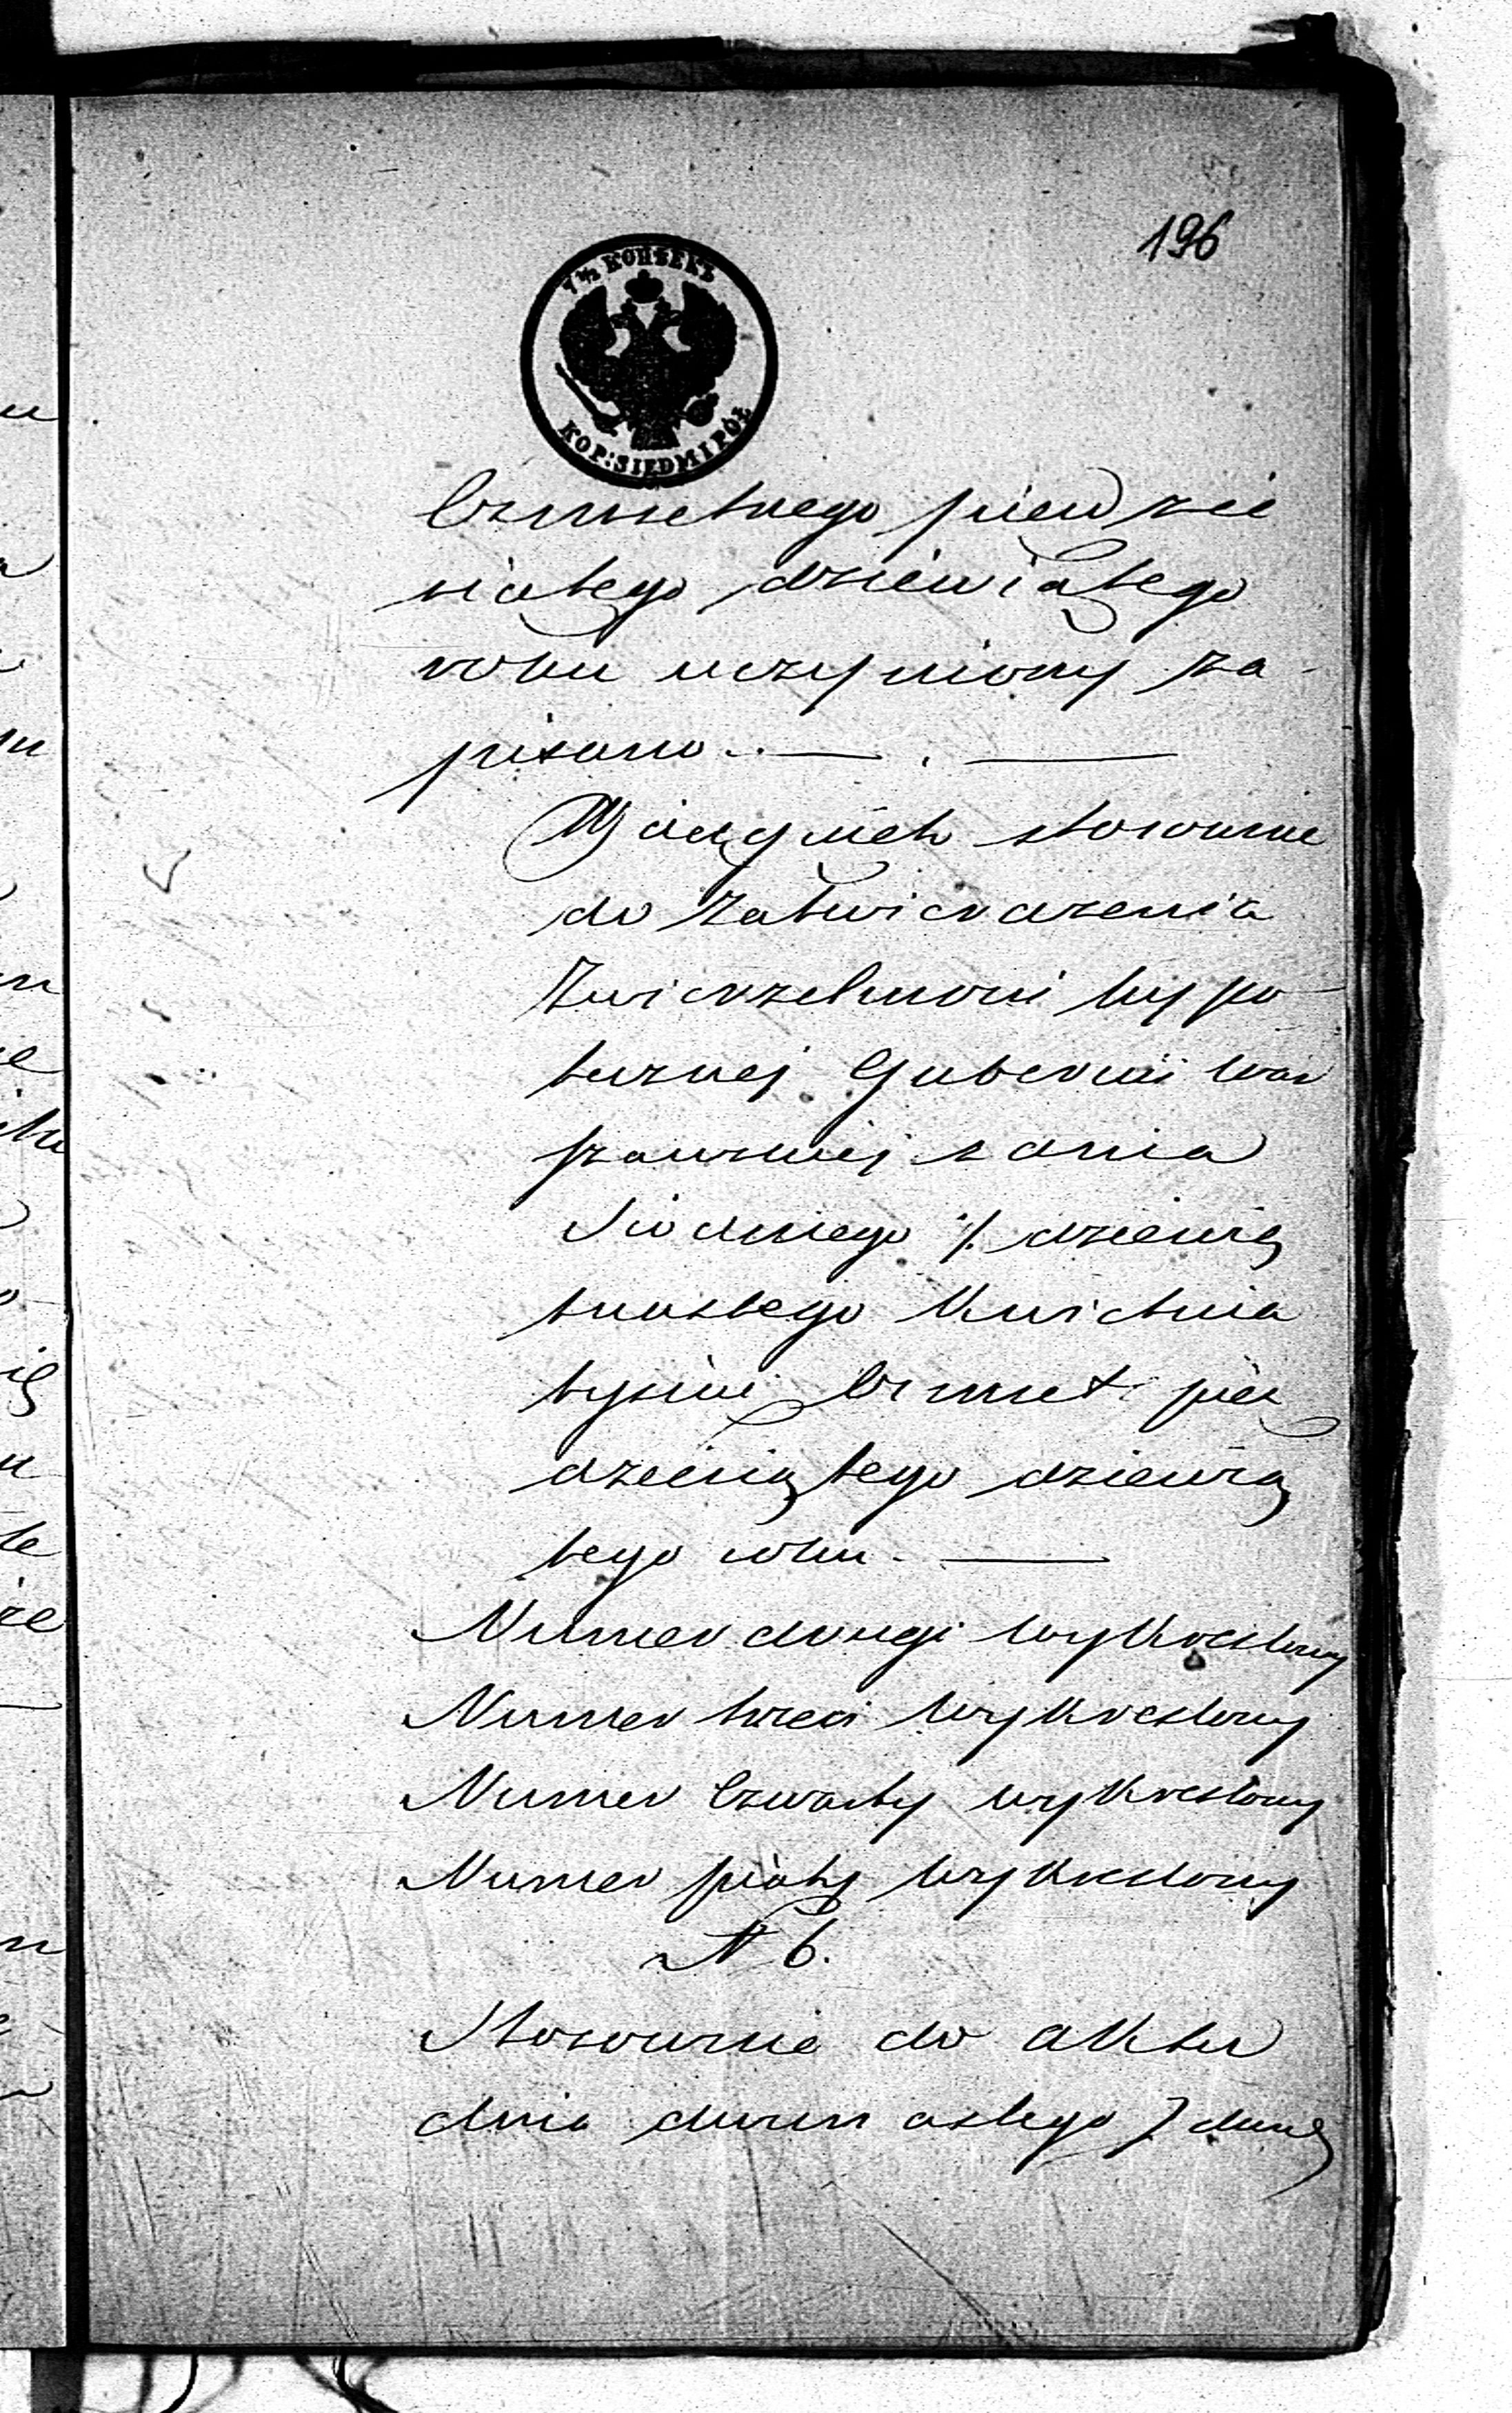 196
7 1/2 КОПѢЕКЪ
KOP: SIEDM I PÓŁ
Ośmsetnego piędzie
siątego dziewiątego
roku uczyniony za-
pisano. — . —
Wciągnięto stosownie
do Zatwierdzenia
Zwierzchności hypo-
tecznej Gubernii War
szawskiej z dnia
Siódmego /. dziewię
tnastego Kwietnia
tysiąc Ośmset pięć
dziesiątego dziewią
tego roku. —
Numer drugi wykreślony
Numer trzeci wykreślony
Numer Czwarty wykreślony
Numer piąty wykreślony
N 6.
Stosownie do aktu
dnia dwunastego /